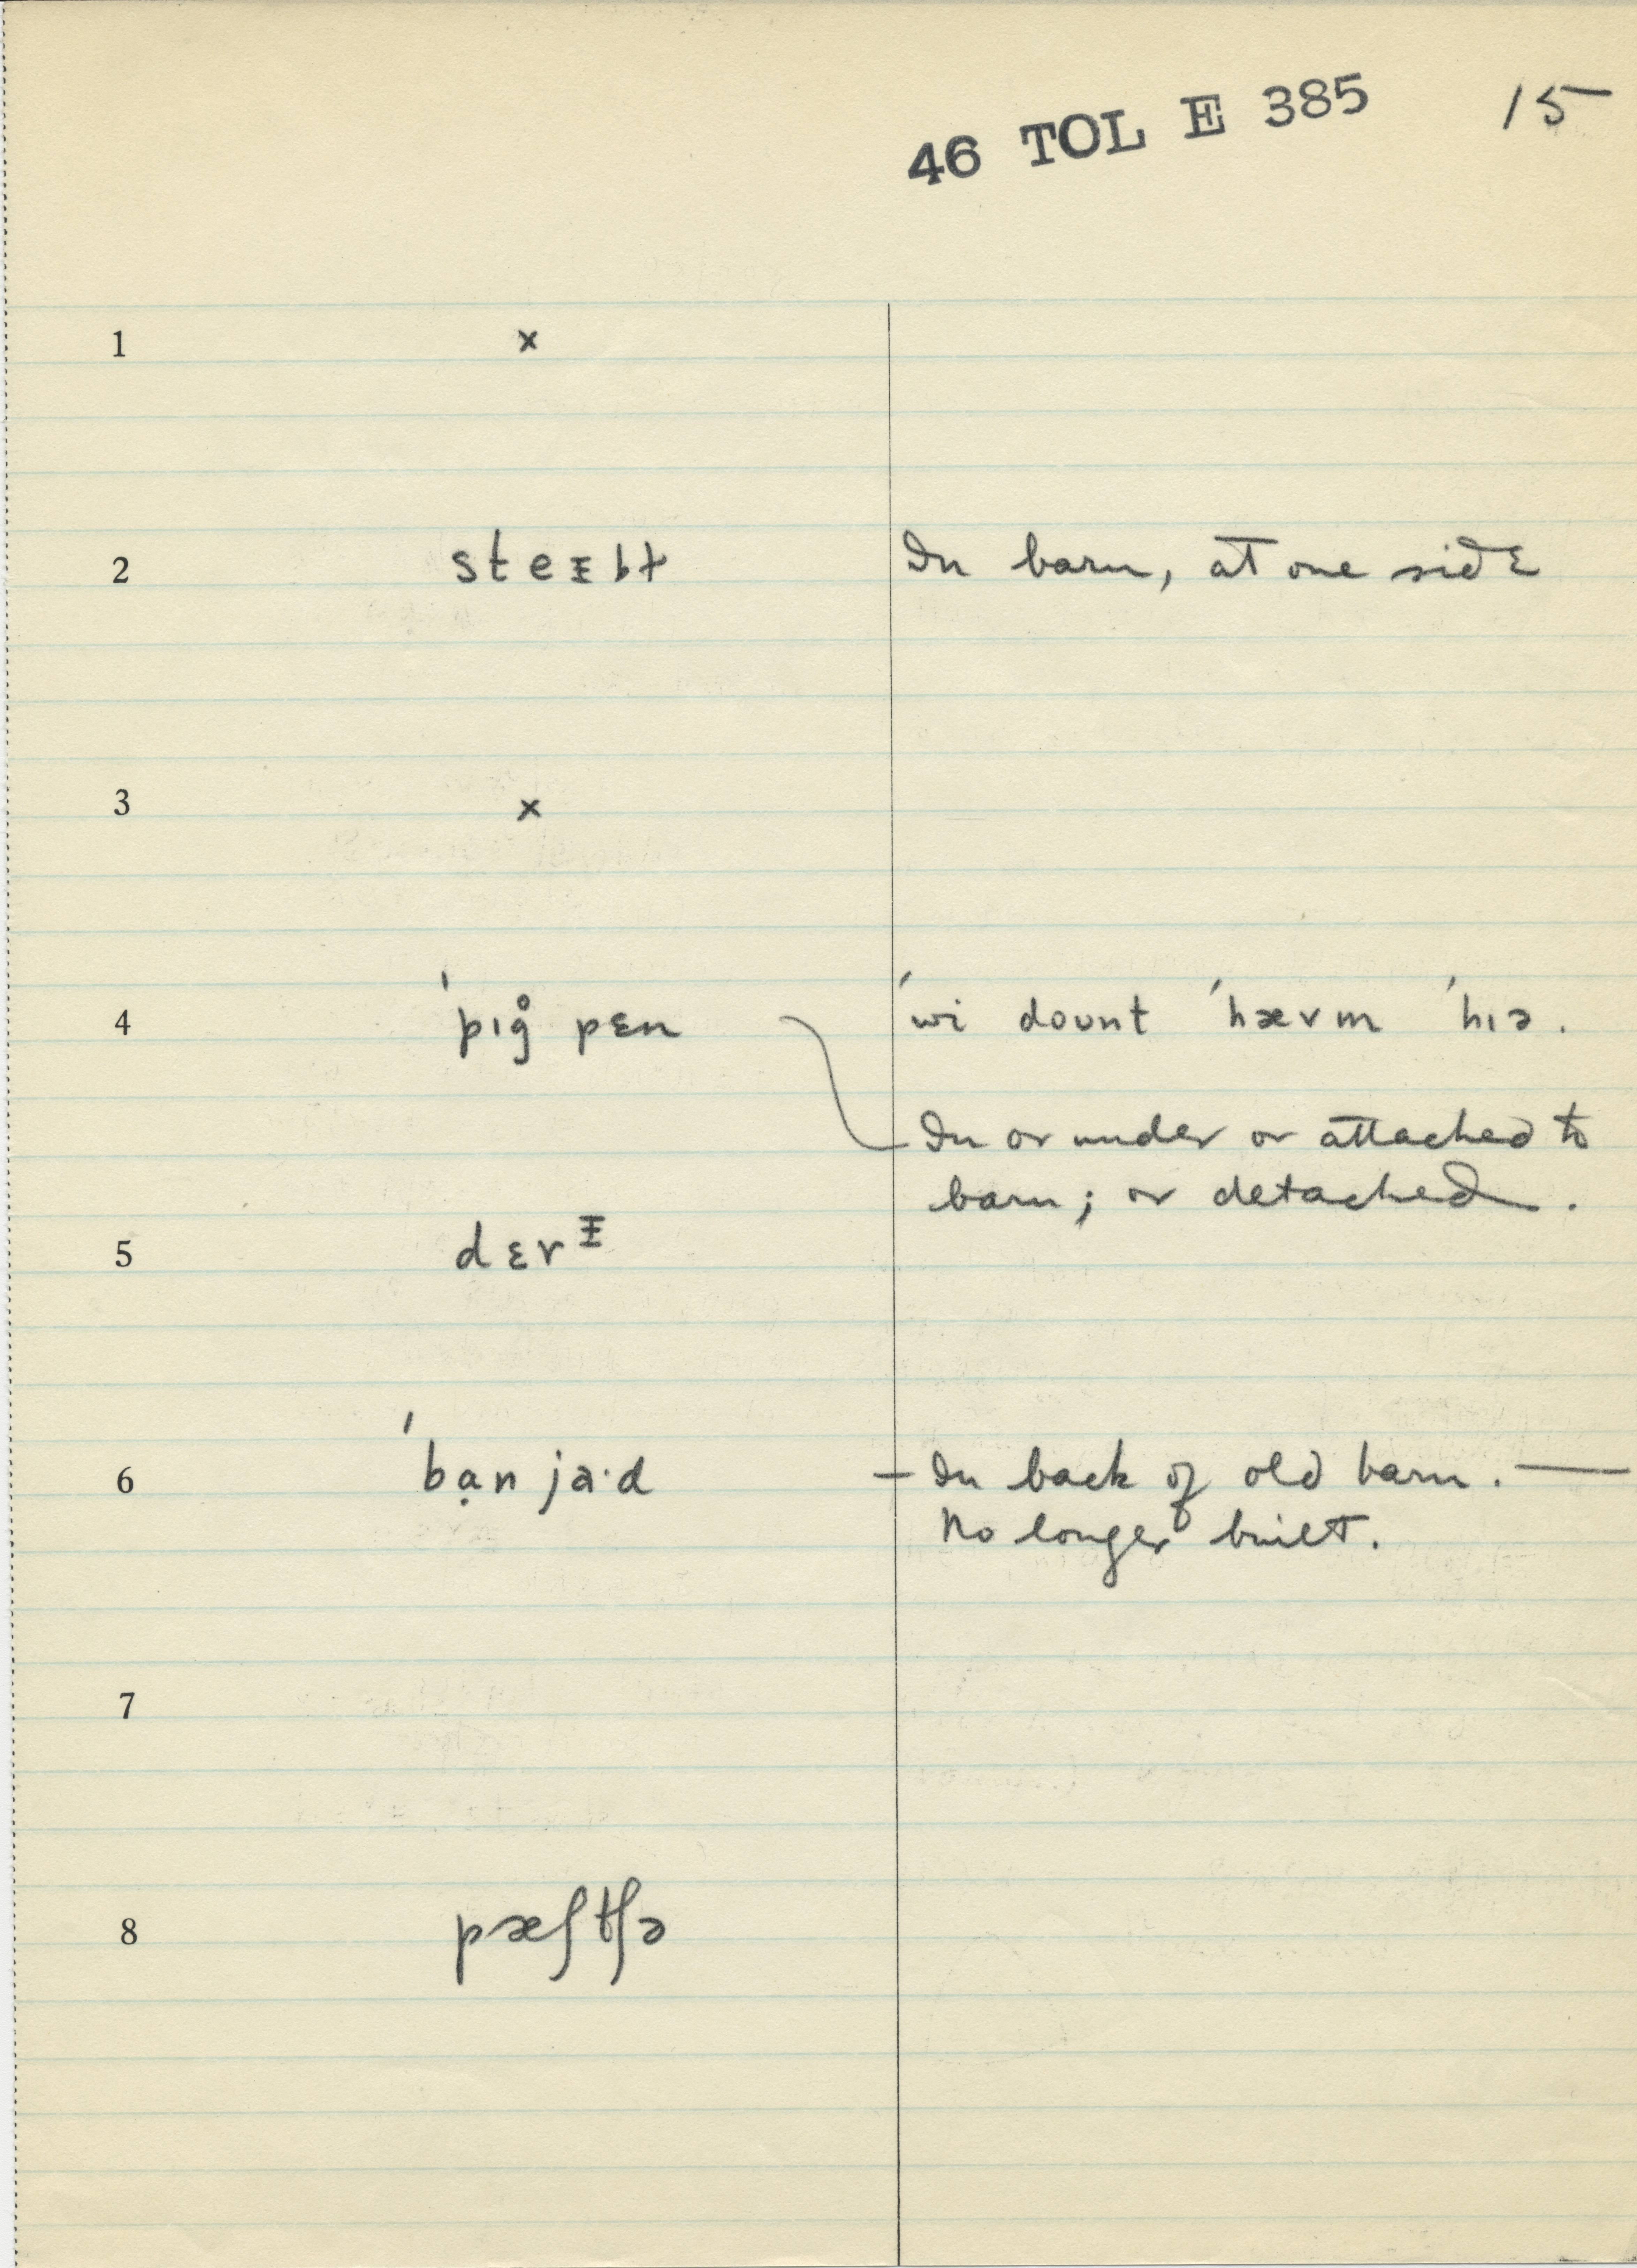 46 TOL E 385 15
1 x
2 steᵻbɫ In barn, at one side
3 x
4 ˈpɪg̊ pɛn ˈwi doʊnt ˈhævm ˈhɪə.
In or under or attached to
barn; or detached.
5 dɛrᵻ
6 ˈbạn ja·d — In back of old barn. —
No longer built.
7
8 pæʃtʃə